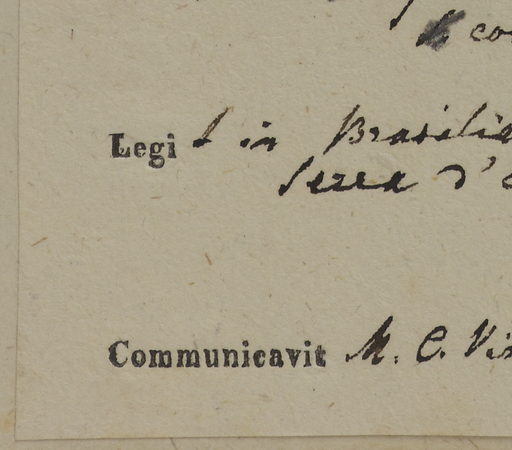 Legit in Brasilie
Serra d'
Communicavit M. C. Vi